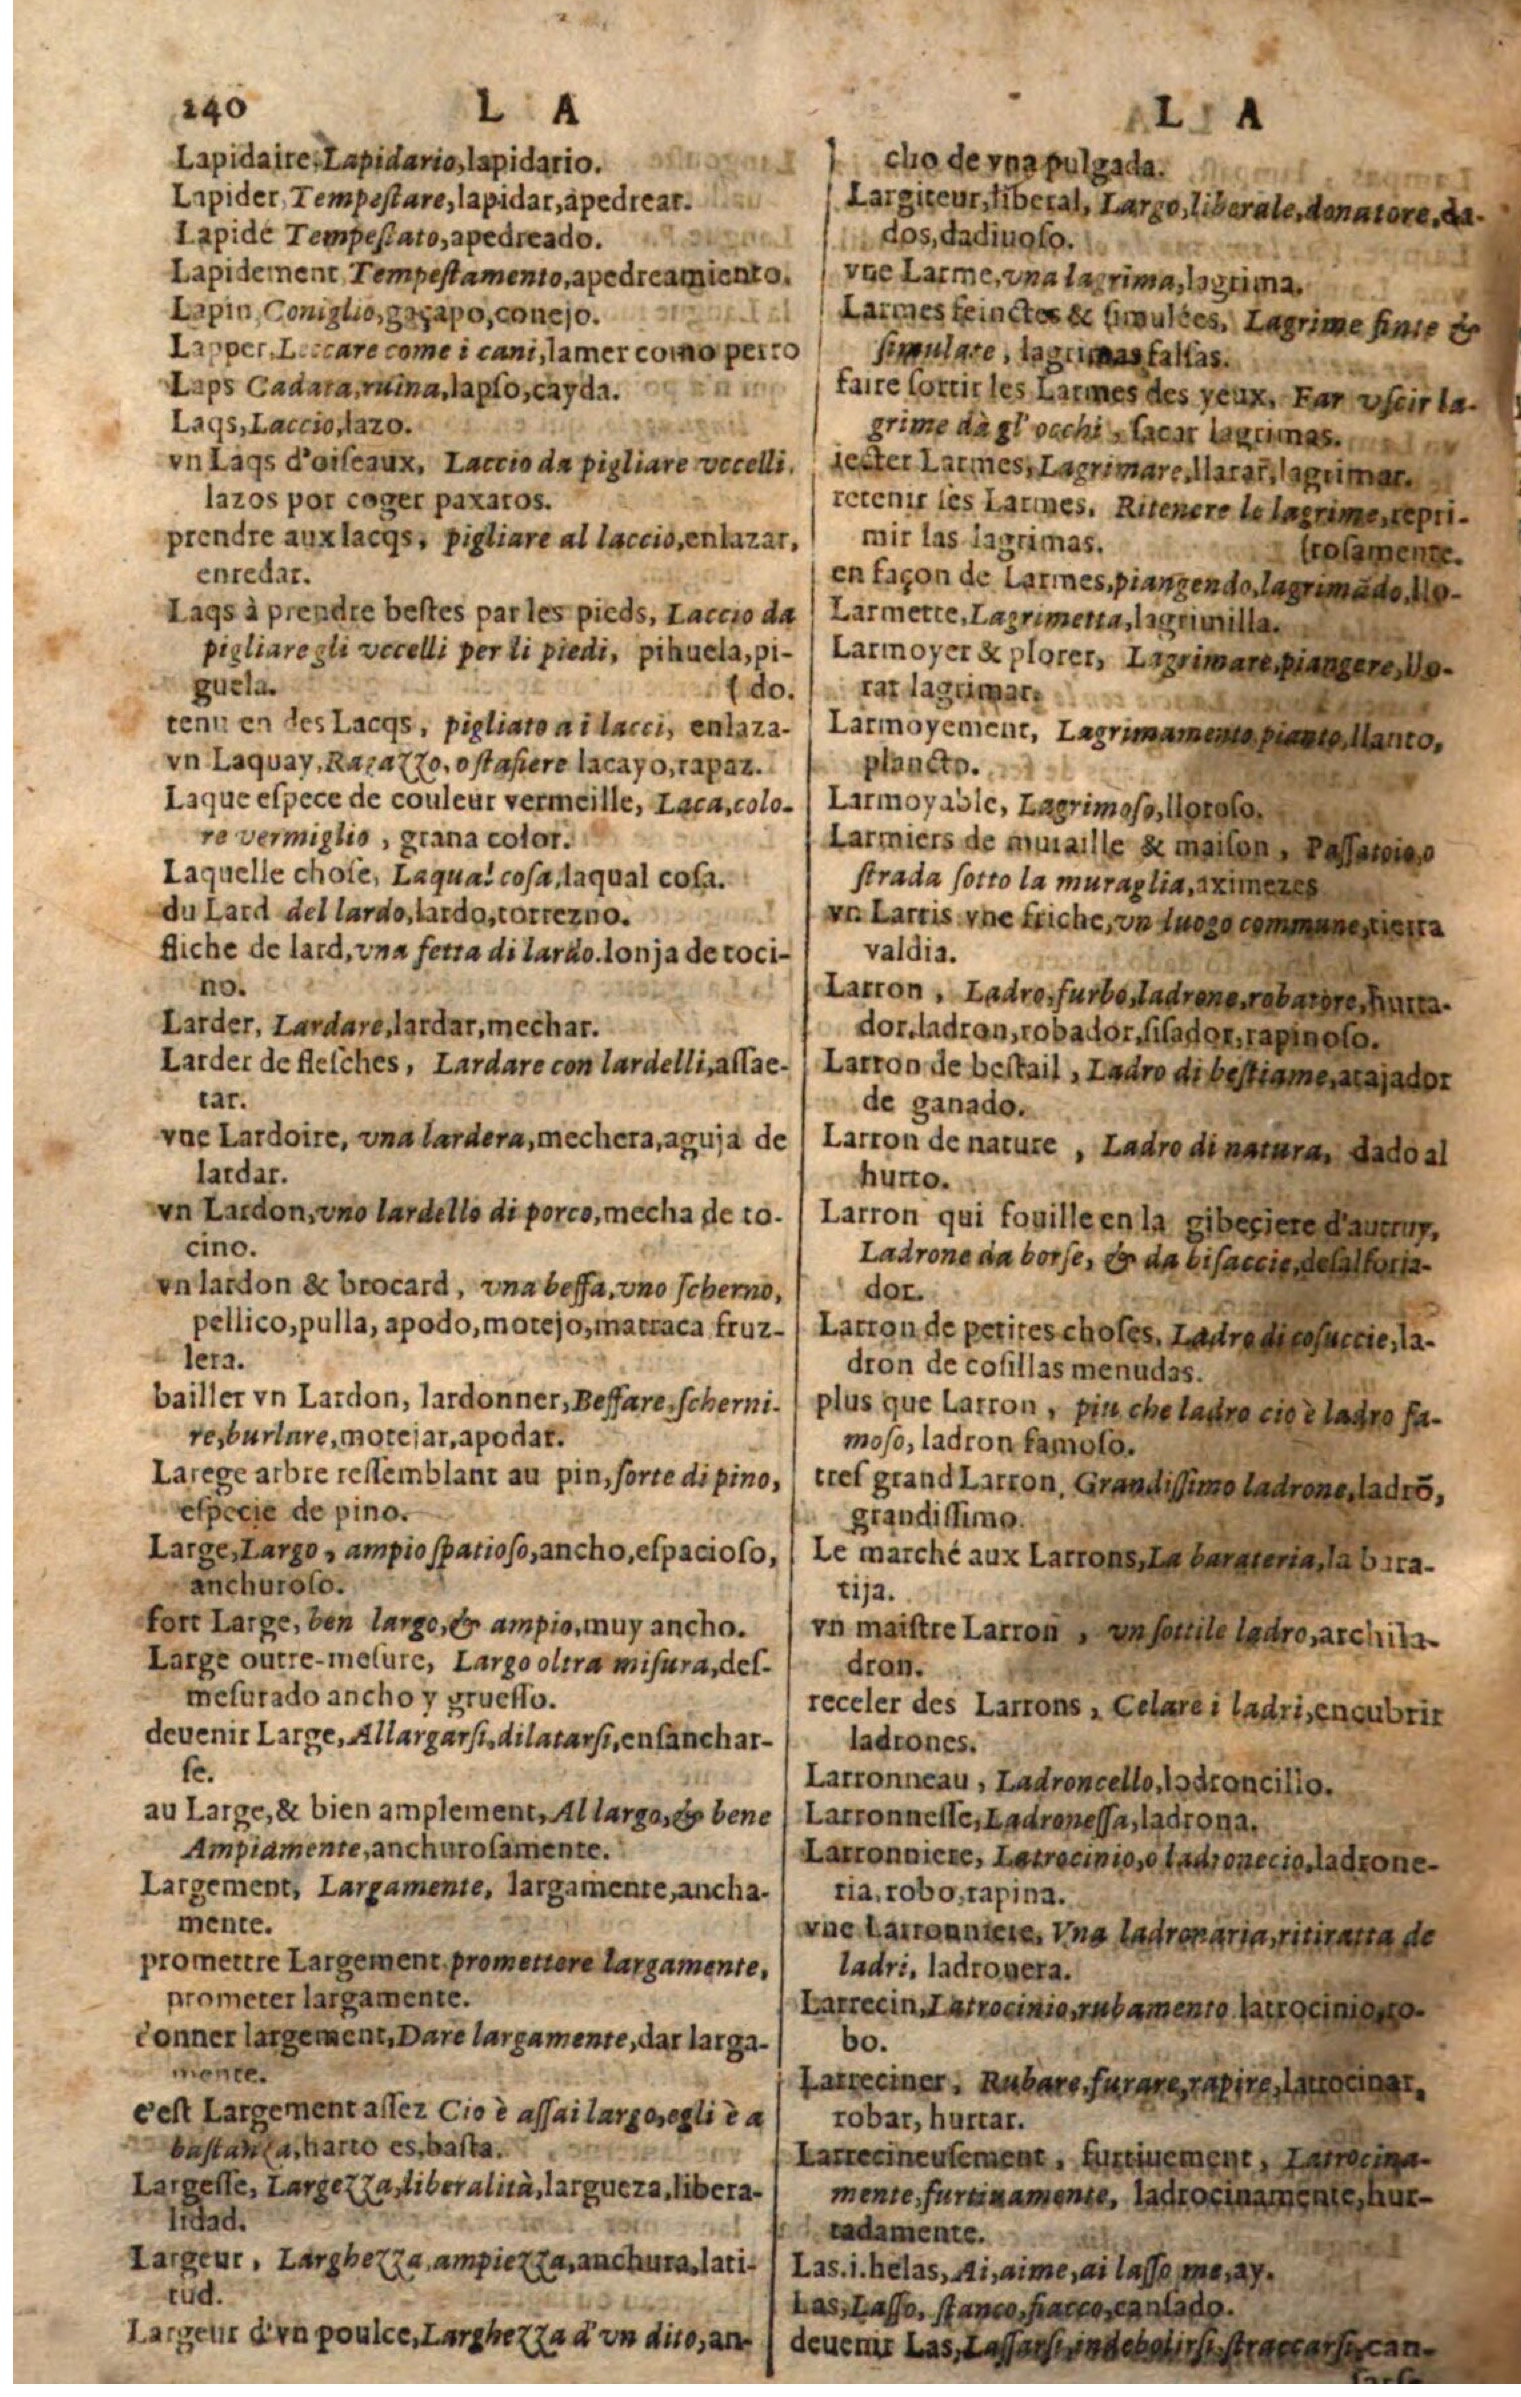 240 L A
Lapidaire, Lapidario, lapidario.
Lapider, Tempeſtare, lapidar, apedrear.
Lapidé Tempeſtato, apedreado.
Lapidement Tempeſtamento, apedreamiento.
Lapin, Coniglio, gaçapo, conejo.
Lapper, Leccare come i cani, lamer como perro
Laps Cadata, ruina, lapſo, cayda.
Laqs, Laccio, lazo.
vn Laqs d'oiſeaux, Laccio da pigliare vccelli,
lazos por coger paxaros.
prendre aux lacqs, pigliare al laccio, enlazar,
enredar.
Laqs à prendre beſtes par les pieds, Laccio da
pigliare gli vccelli per li piedi, pihuela, pi-
guela. ( do.
tenu en des Lacqs, pigliato a i lacci, enlaza-
vn Laquay, Ragazzo, o ſtafiere lacayo, rapaz.
Laque eſpece de couleur vermeille, Laca, colo-
re vermiglio, grana color.
Laquelle choſe, Laqual coſa, laqual coſa.
du Lard del lardo, lardo, torrezno.
fliche de lard, vna fetta di lardo. lonja de toci-
no.
Larder, Lardare, lardar, mechar.
Larder de fleſches, Lardare con lardelli, aſſae-
tar.
vne Lardoire, vna lardera, mechera, aguja de
lardar.
vn Lardon, vno lardello di porco, mecha de to-
cino.
vn lardon & brocard, vna beffa, vno ſcherno,
pellico, pulla, apodo, motejo, matraca fruz-
lera.
bailler vn Lardon, lardonner, Beffare, ſcherni-
re, burlare, motejar, apodar.
Larege arbre reſſemblant au pin, ſorte di pino,
eſpecie de pino.
Large, Largo, ampio ſpatioſo, ancho, eſpacioſo,
anchuroſo.
fort Large, ben largo, & ampio, muy ancho.
Large outre-meſure, Largo oltra miſura, deſ-
meſurado ancho y grueſſo.
deuenir Large, Allargarſi, dilatarſi, enſanchar-
ſe.
au Large, & bien amplement, Al largo, & bene
Ampiamente, anchuroſamente.
Largement, Largamente, largamente, ancha-
mente.
promettre Largement promettere largamente,
prometer largamente.
donner largement, Dare largamente, dar larga-
mente.
c'eſt Largement aſſez Cio è aſſai largo, egli è a
baſtanza, harto es, baſta.
Largeſſe, Largezza, liberalità, largueza, libera-
lidad.
Largeur, Larghezza, ampiezza, anchura, lati-
tud.
Largeur d'vn poulce, Larghezza d'vn dito, an-
L A
cho de vna pulgada.
Largiteur, liberal, Largo, liberale, donatore, da-
dos, dadiuoſo.
vne Larme, vna lagrima, lagrima.
Larmes feinctes & ſimulées, Lagrime finte &
ſimulate, lagrimas falſas.
faire ſortir les Larmes des yeux, Far vſcir la-
grime dà gl' occhi, ſacar lagrimas.
iecter Larmes, Lagrimare, llarar, lagrimar.
retenir ſes Larmes, Ritenere le lagrime, repri-
mir las lagrimas. (roſamente.
en façon de Larmes, piangendo, lagrimãdo, llo-
Larmette, Lagrimetta, lagrimilla.
Larmoyer & plorer, Lagrimare, piangere, llo-
rar lagrimar.
Larmoyement, Lagrimamento pianto, llanto,
plancto.
Larmoyable, Lagrimoſo, lloroſo.
Larmiers de muraille & maiſon, Paſſatoio, o
ſtrada ſotto la muraglia, aximezes
vn Larris vne friche, vn luogo commune, tierra
valdia.
Larron, Ladro, furbo, ladrone, robatore, hurta-
dor, ladron, robador, ſiſador, rapinoſo.
Larron de beſtail, Ladro di beſtiame, atajador
de ganado.
Larron de nature, Ladro di natura, dado al
hurto.
Larron qui fouille en la gibeçiere d'autruy,
Ladrone da borſe, & da biſaccie, deſalforja-
dor.
Larron de petites choſes, Ladro di coſuccie, la-
dron de coſillas menudas.
plus que Larron, piu che ladro cio è ladro fa-
moſo, ladron famoſo.
treſ grand Larron, Grandiſſimo ladrone, ladrõ,
grandiſſimo.
Le marché aux Larrons, La barateria, la bara-
tija.
vn maiſtre Larron, vn ſottile ladro, archila-
dron.
receler des Larrons, Celare i ladri, encubrir
ladrones.
Larronneau, Ladroncello, ladroncillo.
Larronneſſe, Ladroneſſa, ladrona.
Larronniere, Latrocinio, o ladronecio, ladrone-
ria, robo, rapina.
vne Larronniere, Vna ladronaria, ritiratta de
ladri, ladronera.
Larrecin, Latrocinio, rubamento latrocinio, ro-
bo.
Larreciner, Rubare, furare, rapire, latrocinar,
robar, hurtar.
Larrecineuſement, furtiuement, Latrocina-
mente, furtiuamente, ladrocinamente, hur-
tadamente.
Las.i.helas, Ai, aime, ai laſſo me, ay.
Las, Laſſo, ſtanco, fiacco, canſado.
deuenir Las, Laſſarſi, indebolirſi, ſtraccarſi, can-